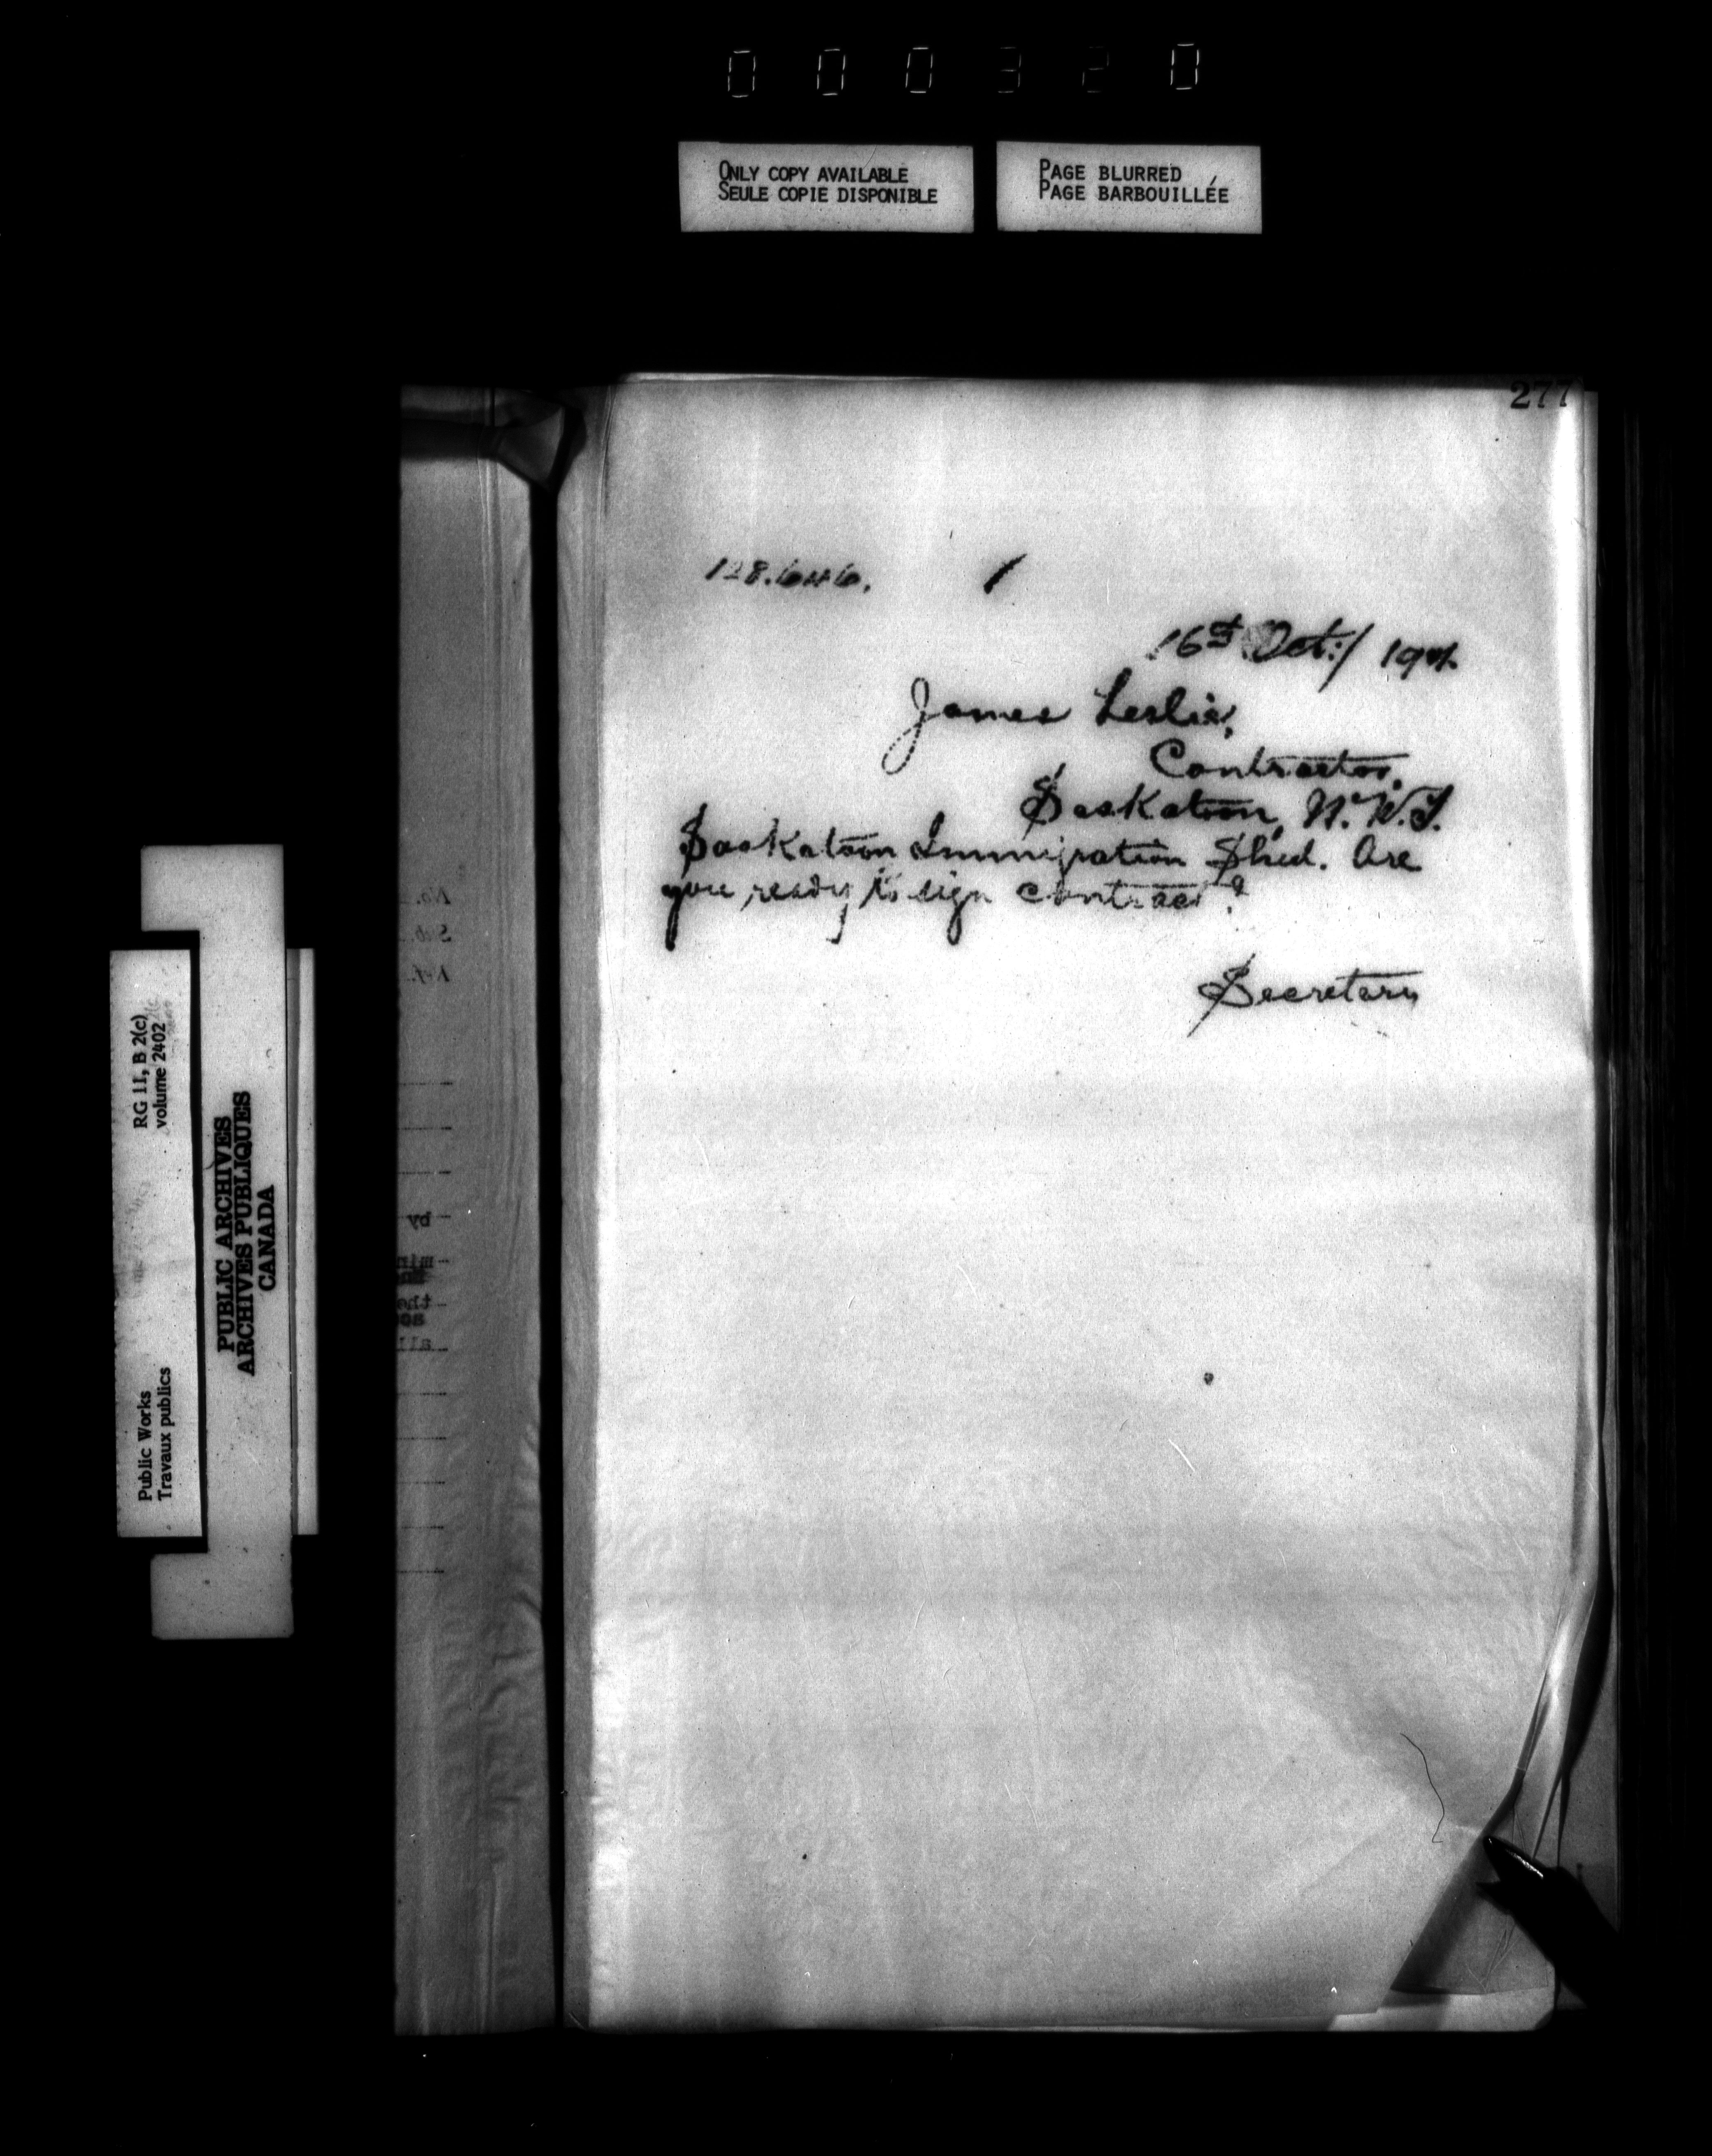 000320
ONLY COPY AVAILABLE
SEULE COPIE DISPONIBLE
PAGE BLURRED
PAGE BARBOUILLÉE
277
128.646.
16th Oct:/ 1901.
James Leslie,
Contractor,
Saskatoon, N.W.T.
Saskatoon Immigration Shed. Are
you ready to sign contract?
Secretary
RG 11, B 2(c)
volume 2402
Public Works
Travaux publics
PUBLIC ARCHIVES
ARCHIVES PUBLIQUES
CANADA
No.
Sub.
Ref.
by
the
all